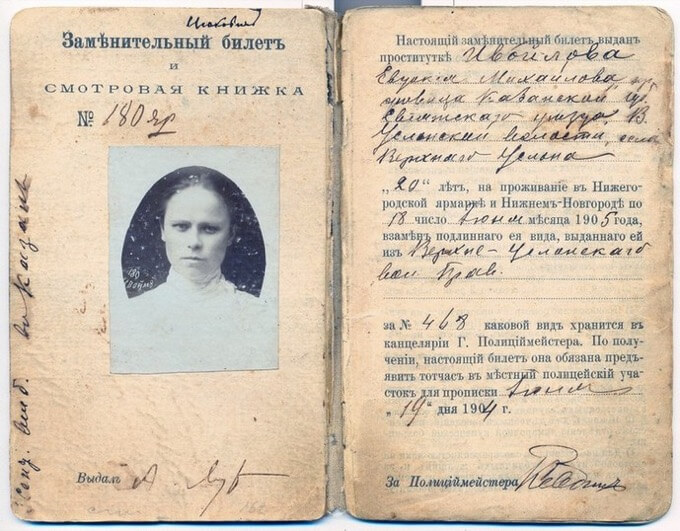 Замѣнительный билетъ
и
СМОТРОВАЯ КНИЖКА
№ 180 яр
Выдалъ
Настоящій замѣнительный билетъ выданъ
проституткѣ Ивойлова
Михайлова
Казанской
уѣзда, В.
Услонской волости, села
Верхняго Услона
„20“ лѣтъ, на проживаніе въ Нижего-
родской ярмаркѣ и Нижнемъ-Новгородѣ по
18 число Іюня мѣсяца 1905 года,
взамѣнъ подлиннаго ея вида, выданнаго ей
изъ Верхне-Услонскаго
вол. Прав.
за № 468 каковой видъ хранится въ
канцеляріи Г. Полиціймейстера. По полу-
ченіи, настоящій билетъ она обязана предъ-
явить тотчасъ въ мѣстный полицейскій уча-
стокъ для прописки Іюня
„19“ дня 1904 г.
За Полиціймейстера
въ Казань